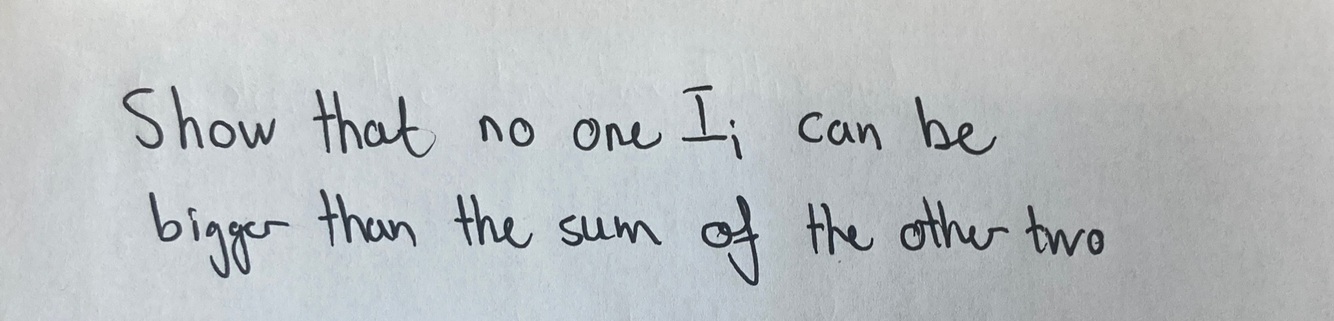 Show that no one Iᵢ can be
bigger than the sum of the other two